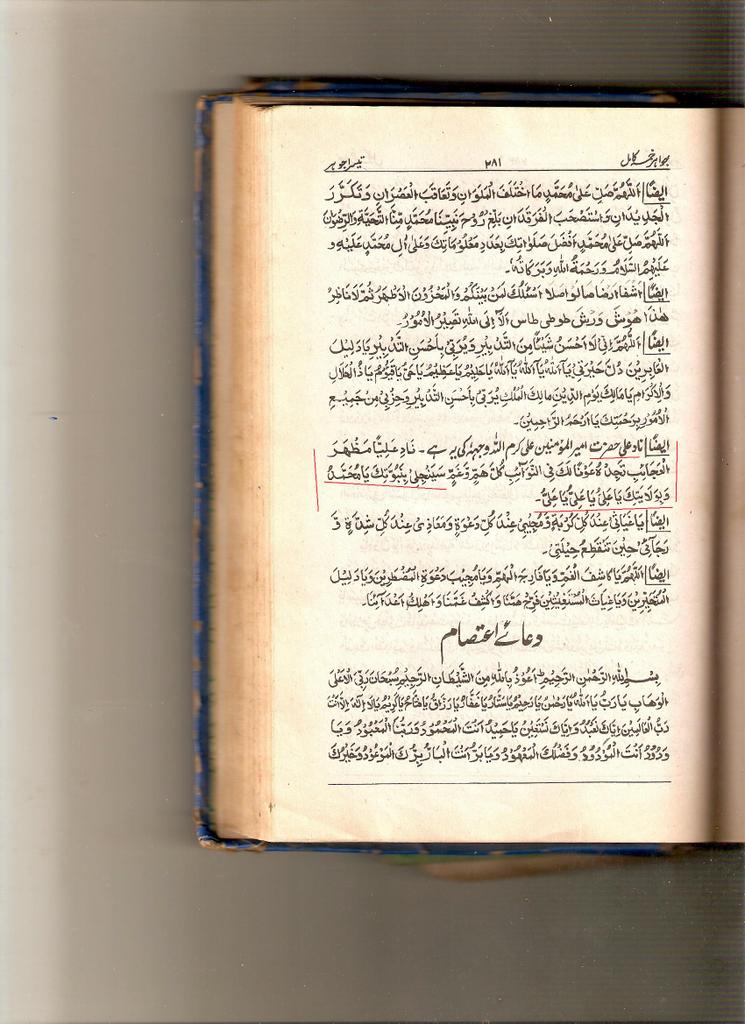 جواہر خمسہ کامل ۲۸۱ تیسرا جوہر
ایضًا اَللّٰهُمَّ صَلِّ عَلٰى مُحَمَّدٍ مَا اخْتَلَفَ الْمَلَوَانِ وَتَعَاقَبَ الْعَصْرَانِ وَتَكَرَّرَ
الْجَدِيْدَانِ وَاسْتَصْحَبَ الْفَرْقَدَانِ بَلِّغْ رُوْحَ نَبِيِّنَا مُحَمَّدٍ مِّنَّا التَّحِيَّةَ وَالرِّضْوَانَ
اَللّٰهُمَّ صَلِّ عَلٰى مُحَمَّدٍ اَفْضَلَ صَلَوَاتِكَ بِعَدَدِ مَعْلُوْمَاتِكَ وَعَلٰى اٰلِ مُحَمَّدٍ عَلَيْهِ وَ
عَلَيْهِمُ السَّلَامُ وَرَحْمَةُ اللّٰهِ وَبَرَكَاتُهٗ۔
ایضًا اَسْئَلُكَ الْاَظْهَرُ ثُمَّ لَا نَاظِرُ
هٰذَا طوطی طاس اَلَا اِلَى اللّٰهِ تَصِيْرُ الْاُمُوْرُ۔
ایضًا اَللّٰهُمَّ اِنِّیْ لَا اَحْسَنُ شَيْئًا مِنَ التَّدْبِيْرِ وَيُرَبِّیْ بِاَحْسَنِ التَّدْبِيْرِ يَا دَلِيْلَ
يَا اَللّٰهُ يَا اَللّٰهُ يَا اَللّٰهُ يَا عَظِيْمُ يَا حَیُّ يَا قَيُّوْمُ يَا ذَا الْجَلَالِ
وَالْاِكْرَامِ يَا مَالِكَ يَوْمِ الدِّيْنِ مَالِكَ الْمُلْكِ بِاَحْسَنِ التَّدْبِيْرِ مِنْ جَمِيْعِ
الْاُمُوْرِ بِرَحْمَتِكَ يَا اَرْحَمَ الرَّاحِمِيْنَ۔
ایضًا ناد علی حضرت امیر المؤمنین علی کرم اللہ وجہہٗ کی یہ ہے۔ نَادِ عَلِيًّا مَظْهَرَ
الْعَجَائِبِ تَجِدْهُ عَوْنًا لَّكَ فِی النَّوَآئِبِ كُلُّ هَمٍّ وَّغَمٍّ سَيَنْجَلِیْ بِنَبُوَّتِكَ يَا مُحَمَّدُ
وَبِوَلَايَتِكَ يَا عَلِیُّ يَا عَلِیُّ يَا عَلِیُّ۔
ایضًا يَا غِيَاثِیْ عِنْدَ كُلِّ كُرْبَةٍ وَّمُجِيْبِیْ عِنْدَ كُلِّ دَعْوَةٍ وَمَعَاذِیْ عِنْدَ كُلِّ شِدَّةٍ وَّ
رَجَآئِیْ حِيْنَ تَنْقَطِعُ حِيْلَتِیْ۔
ایضًا اَللّٰهُمَّ يَا كَاشِفَ الْغَمِّ وَيَا فَارِجَ الْهَمِّ وَيَا مُجِيْبَ دَعْوَةِ الْمُضْطَرِّيْنَ وَيَا دَلِيْلَ
الْمُتَحَيِّرِيْنَ وَيَا غِيَاثَ الْمُسْتَغِيْثِيْنَ فَرِّجْ هَمَّنَا وَاكْشِفْ غَمَّنَا وَاَهْلِكْ اَعْدَآئَنَا۔
دعائے اعتصام
بِسْمِ اللّٰهِ الرَّحْمٰنِ الرَّحِيْمِ اَعُوْذُ بِاللّٰهِ مِنَ الشَّيْطَانِ الرَّجِيْمِ سُبْحَانَ رَبِّیَ الْاَعْلَى
الْوَهَّابِ يَا رَبِّ يَا اَللّٰهُ يَا رَحْمٰنُ يَا رَحِيْمُ يَا سَتَّارُ يَا غَفَّارُ يَا رَزَّاقُ يَا فَتَّاحُ يَا كَرِيْمُ يَا لَا اِلٰهَ اِلَّا اَنْتَ
رَبُّ الْعَالَمِيْنَ اِيَّاكَ نَعْبُدُ وَاِيَّاكَ نَسْتَعِيْنُ يَا حَمِيْدُ اَنْتَ الْمَحْمُوْدُ وَرَبُّنَا الْمَعْبُوْدُ وَيَا
وَدُوْدُ اَنْتَ الْمَوْدُوْدُ وَفَضْلُكَ الْمَعْهُوْدُ وَيَا بَرُّ اَنْتَ الْبَارُّ بِرُّكَ الْمَوْعُوْدُ وَخَيْرُكَ